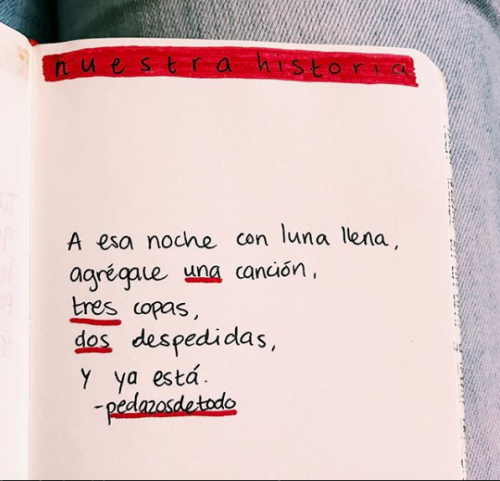 nuestra historia
A esa noche con luna llena,
agrégale una canción,
tres copas,
dos despedidas,
y ya está.
-pedazosdetodo